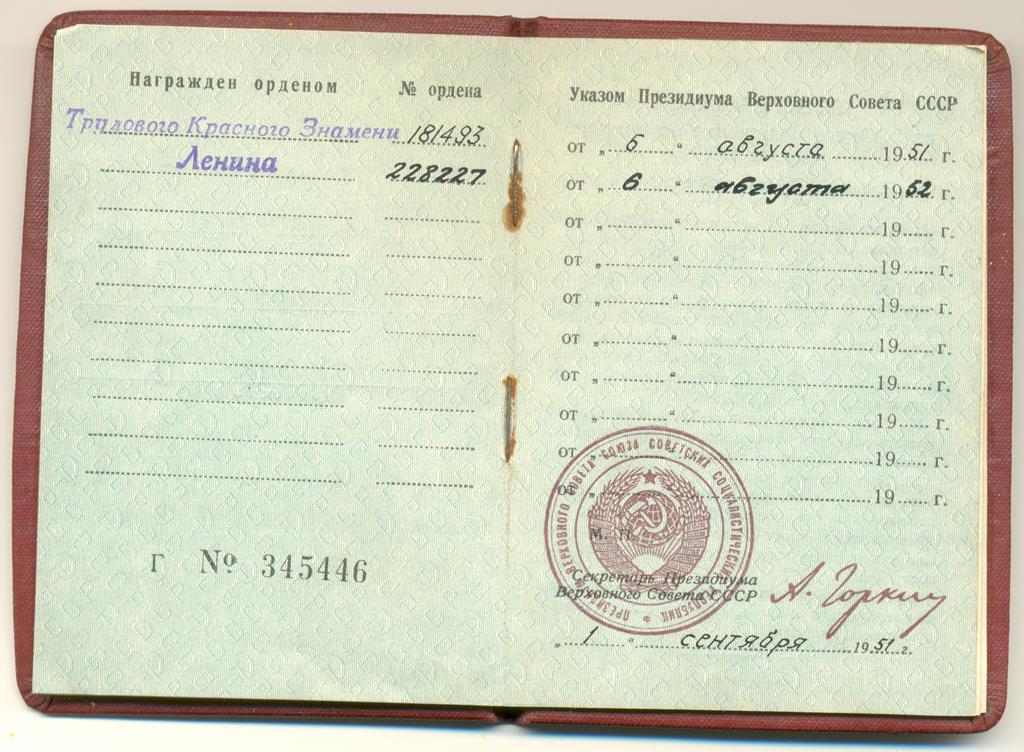 Награжден орденом № ордена
Трудового Красного Знамени 181493
Ленина 228227
Г № 345446
Указом Президиума Верховного Совета СССР
от „ 6 “ августа 1951 г.
от „ 6 “ августа 1952 г.
от „ “ 19 г.
от „ “ 19 г.
от „ “ 19 г.
от „ “ 19 г.
от „ “ 19 г.
от „ “ 19 г.
от „ “ 19 г.
от „ “ 19 г.
ПРЕЗИДИУМ ВЕРХОВНОГО СОВЕТА СОЮЗА СОВЕТСКИХ СОЦИАЛИСТИЧЕСКИХ РЕСПУБЛИК
М. П.
Секретарь Президиума
Верховного Совета СССР А. Горкин
„ 1 “ сентября 1951 г.